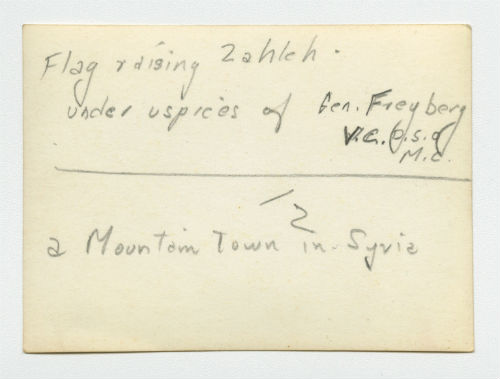 Flag raising Zahleh.
under uspices of Gen. Freyberg
V.C. D.S.O
M.C.
a Mountain Town in Syria